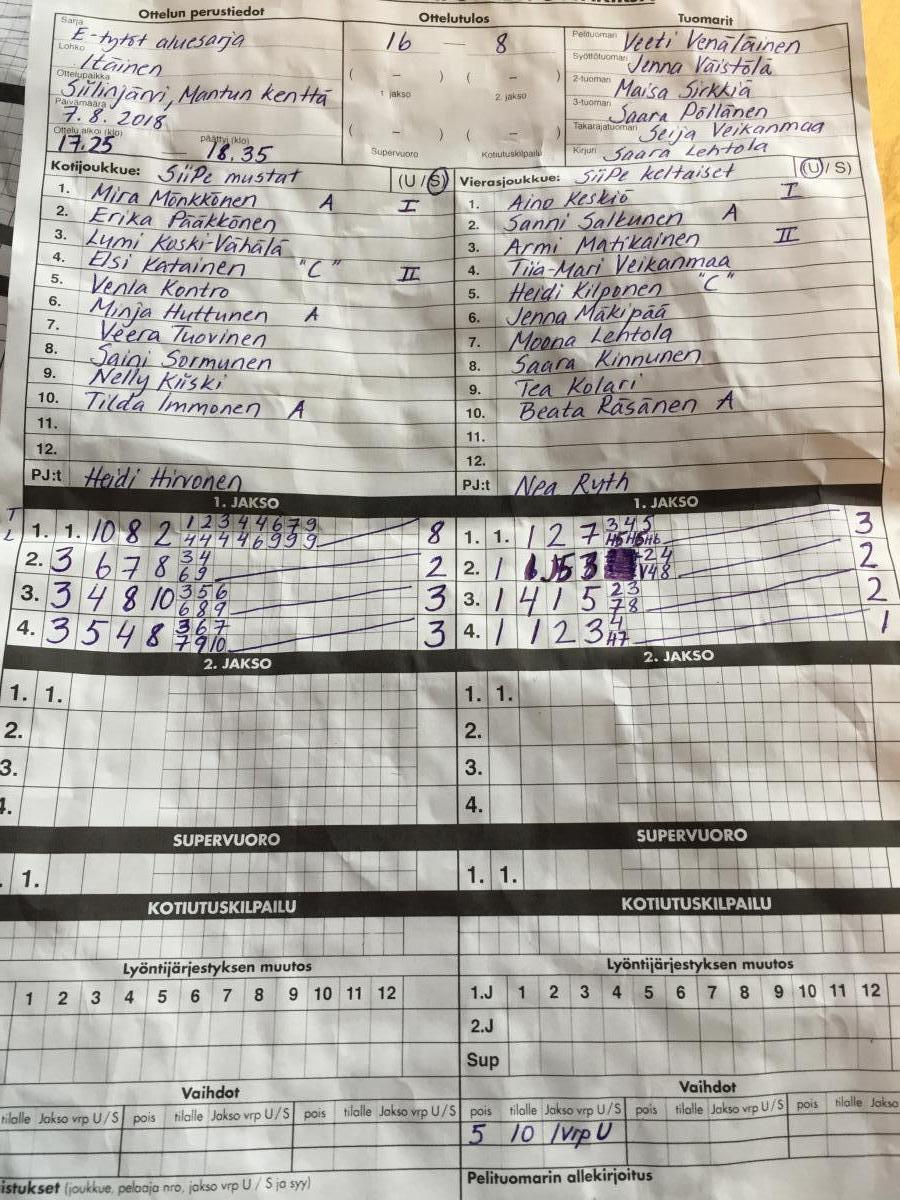 Ottelun perustiedot
Ottelutulos
Tuomarit
Sarja
E-tytöt aluesarja
Lohko
Itäinen
Ottelupaikka
Siilinjärvi, Mantun kenttä
Päivämäärä
7.8.2018
Ottelu alkoi (klo) päättyi (klo)
17.25 – 18.35
16 — 8
( – ) ( – )
1 jakso 2. jakso
( – ) ( – )
Supervuoro Kotiutuskilpailu
Pelituomari Veeti Venäläinen
Syöttötuomari Jenna Väistölä
2-tuomari Maisa Sirkkiä
3-tuomari Saara Pöllänen
Takarajatuomari Seija Veikanmaa
Kirjuri Saara Lehtola
Kotijoukkue: SiiPe mustat (U / S)
1. Mira Mönkkönen A I
2. Erika Pääkkönen
3. Lumi Koski-Vähälä
4. Elsi Katainen "C" II
5. Venla Kontro
6. Minja Huttunen A
7. Veera Tuovinen
8. Saini Sormunen
9. Nelly Kiiski
10. Tilda Immonen A
11.
12.
PJ:t Heidi Hirvonen
Vierasjoukkue: SiiPe keltaiset (U / S)
1. Aino Keskiö I
2. Sanni Salkunen A
3. Armi Matikainen II
4. Tiia-Mari Veikanmaa
5. Heidi Kilponen "C"
6. Jenna Mäkipää
7. Moona Lehtola
8. Saara Kinnunen
9. Tea Kolari
10. Beata Räsänen A
11.
12.
PJ:t Nea Ryth
1. JAKSO
1. 1. 10 8 2 1 2 3 4 4 6 7 9 8
4 4 4 4 6 9 9 9
2. 3 6 7 8 3 4 2
6 9
3. 3 4 8 10 3 5 6 3
6 8 9
4. 3 5 4 8 3 6 7 3
7 9 10
1. JAKSO
1. 1. 1 2 7 3 4 5 3
2. 1 2 4 2
3. 1 4 1 5 2 3 2
7 8
4. 1 1 2 3 4 1
2. JAKSO
1. 1.
2.
3.
4.
2. JAKSO
1. 1.
2.
3.
4.
SUPERVUORO
1.
SUPERVUORO
1. 1.
KOTIUTUSKILPAILU
KOTIUTUSKILPAILU
Lyöntijärjestyksen muutos
1 2 3 4 5 6 7 8 9 10 11 12
Lyöntijärjestyksen muutos
1.J 1 2 3 4 5 6 7 8 9 10 11 12
2.J
Sup
Vaihdot
tilalle Jakso vrp U / S pois tilalle Jakso vrp U / S pois tilalle Jakso vrp U / S
Vaihdot
pois tilalle Jakso vrp U / S pois tilalle Jakso vrp U / S pois tilalle Jakso
5 10 1vrp U
istukset (joukkue, pelaaja nro, jakso vrp U / S ja syy)
Pelituomarin allekirjoitus